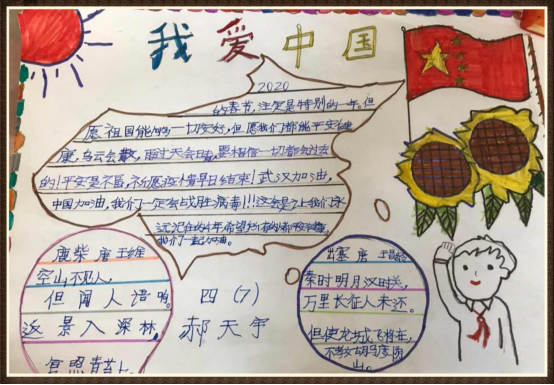 我爱中国
2020
的春节,注定是特别的一年。但
愿祖国能够一切安好,但愿我们都能平安健
康,乌云会散,雨过天会晴,要相信一切都会过去
的!平安是不易,祈愿疫情早日结束!武汉加油,
中国加油,我们一定会战胜病毒!!!这会是让我们永
远记住的
我们一起加油。
鹿柴 唐 王维
空山不见人,
但闻人语响。
返景入深林,
复照青苔上
四(7)
郝天宇
出塞 唐 王昌龄
秦时明月汉时关,
万里长征人未还。
但使龙城飞将在,
不教胡马度阴
山。